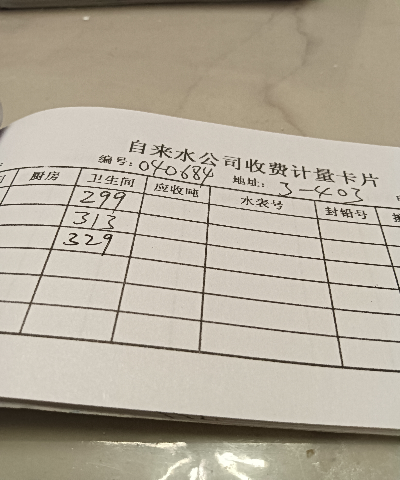 自来水公司收费计量卡片
编号：040684 地址：3-403
厨房 卫生间 应收吨 水表号 封铅号
299
313
329